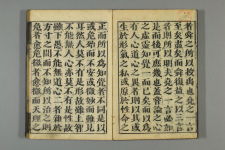 者舜之所以授禹也堯之一言
至矣盡矣而舜復益之以三言
者則所以明夫堯之一言必如
是而後可庶幾也蓋嘗論之心
之虛靈知覺一而已矣而以為
有人心道心之異者則以其或
生於形氣之私或原於性命之
正而所以為知覺者不同是以
或危殆而不安或微妙而難見
耳然人莫不有是形故雖上智
不能無人心亦莫不有是性故
雖下愚不能無道心二者雜於
方寸之間而不知所以治之則
危者愈危微者愈微而天理之